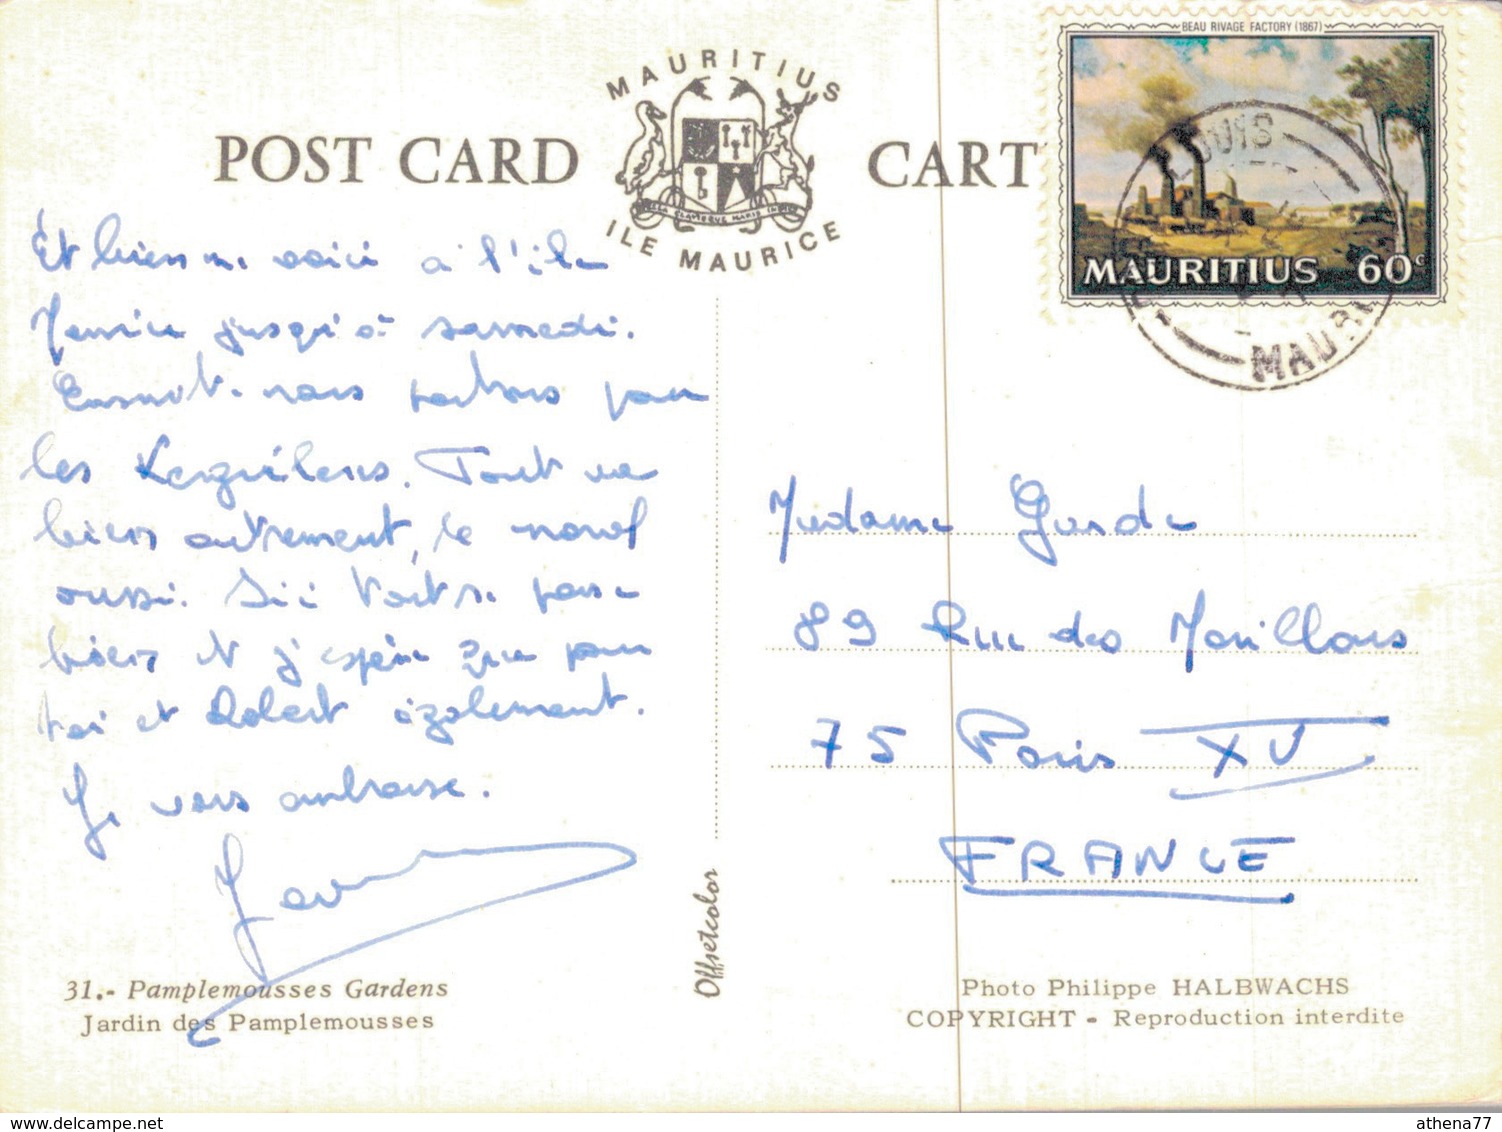 BEAU RIVAGE FACTORY (1867)
MAURITIUS 60c
LOUIS
MAURI
MAURITIUS
POST CARD
CART
ILE MAURICE
Et bien me voici à l'île
Maurice jusqu'à samedi.
Ensuite nous partons pour
les Kerguélens. Tout va
bien autrement, le moral
aussi. Ici tout se passe
bien et j'espère que pour
toi et Robert également.
Je vous embrasse.
Madame Garde
89 Rue des Morillons
75 Paris XV
FRANCE
Offsetcolor
31.- Pamplemousses Gardens
Jardin des Pamplemousses
Photo Philippe HALBWACHS
COPYRIGHT - Reproduction interdite
athena77